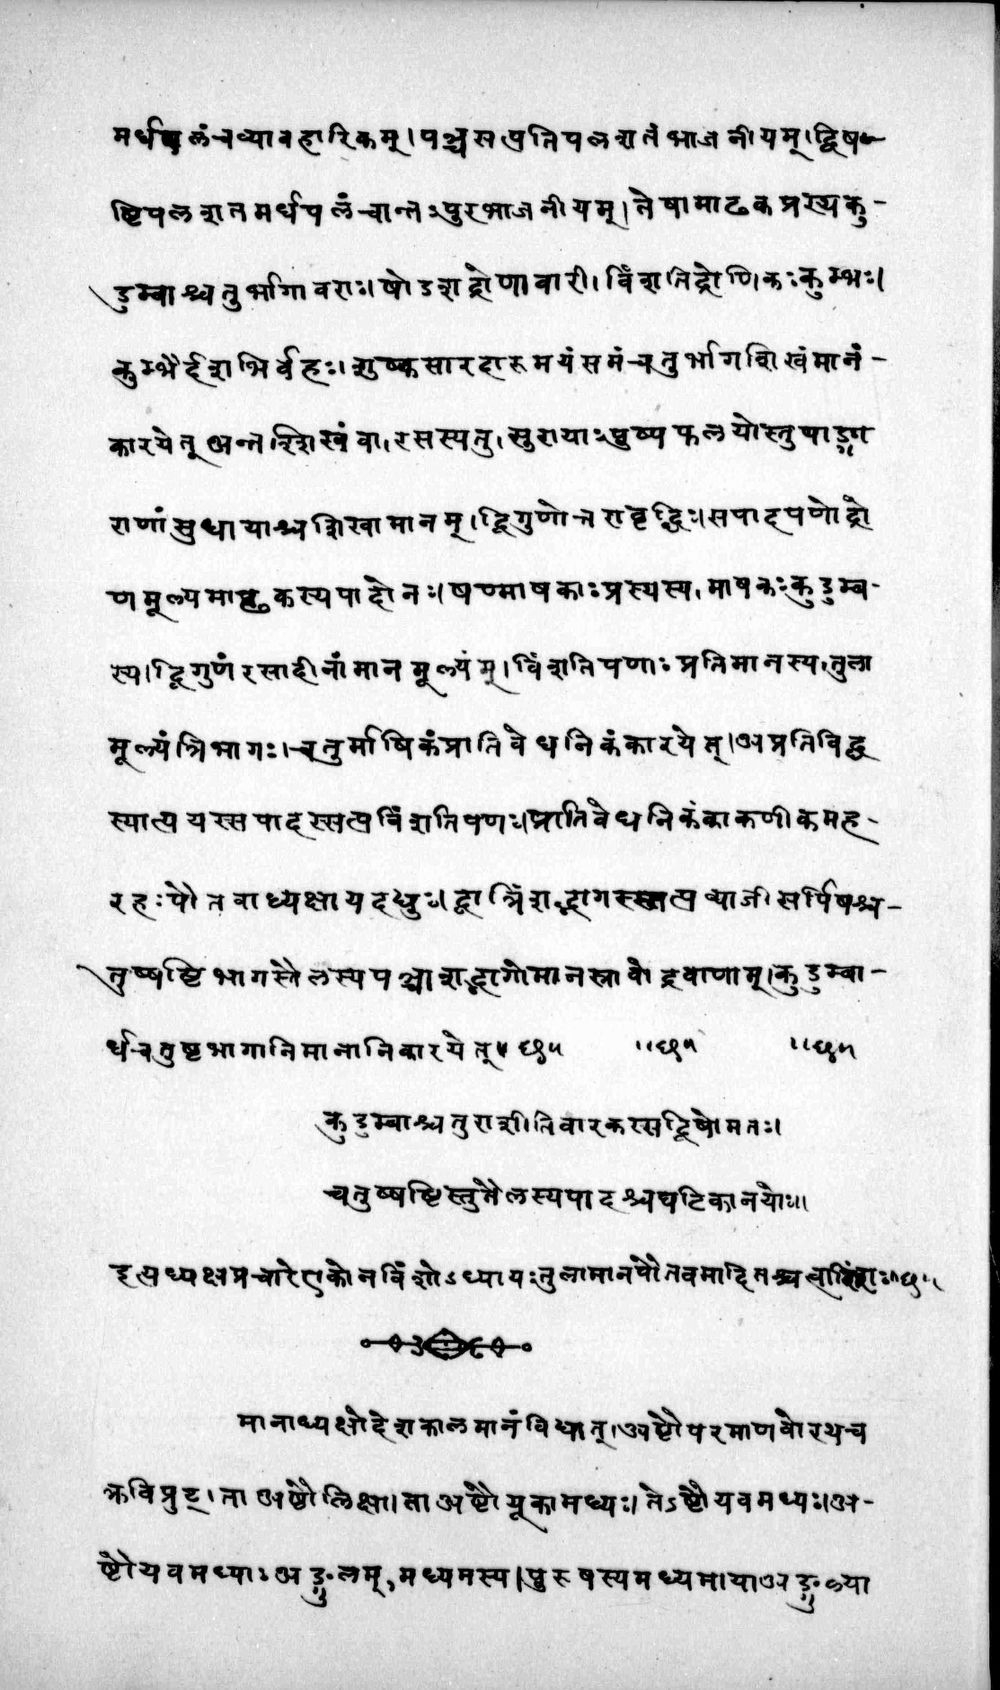 मर्धपलंचव्यावहारिकम्। पञ्चसप्ततिपलशतं भाजनीयम्। द्विष-
ष्टिपलशतमर्धपलं चान्तःपुरभाजनीयम्। तेषामाढकप्रस्थकु-
डुम्बाश्चतुर्भागावराः। षोडशद्रोणावारी। विंशतिद्रोणिकःकुम्भः।
कुम्भैर्दशभिर्वहः। शुष्कसारदारुमयंसमंचतुर्भागशिखंमानं-
कारयेत् अन्तश्शिखंवा। रसस्यतु। सुरायाःपुष्पफलयोस्तुषाङ्गा
राणां सुधायाश्चशिखामानम्। द्विगुणोत्तरावृद्धिः। सपादपणोद्रो
णमूल्यमाढकस्यपादोनः। षण्माषकाःप्रस्थस्य, माषकःकुडुम्ब-
स्य। द्विगुणं रसादीनां मानमूल्यंम्। विंशतिपणाः प्रतिमानस्य, तुला
मूल्यंत्रिभागः। चतुर्माषिकंप्रातिवेधनिकंकारयेत्। अप्रतिविद्ध
स्यात्ययस्सपादस्सप्तविंशतिपणः। प्रातिवेधनिकंकाकणीकमह-
रहःपौतवाध्यक्षायदद्युः। द्वात्रिंशद्भागस्तप्तव्याजी सर्पिषश्च-
तुष्षष्टिभागस्तैलस्यपञ्चाशद्भागोमानस्रावो द्रवाणाम्। कुडुम्बा-
र्धचतुष्टभागानिमानानिकारयेत्॥
कुडुम्बाश्चतुराशीतिवारकस्सर्पिषोमतः।
चतुष्षष्टिस्तुतैलस्यपादश्चघटिकानयोः॥
इत्यध्यक्षप्रचारेएकोनविंशोऽध्यायःतुलामानपौतवमादितश्चत्वारिंशः॥
मानाध्यक्षोदेशकालमानंविद्यात्। अष्टौपरमाणवोरथच
क्रविप्रुट्। ता अष्टौलिक्षा। ता अष्टौ यूकामध्यः। तेऽष्टौयवमध्यः। अ-
ष्टौयवमध्याः अङ्गुलम्, मध्यमस्य। पुरुषस्यमध्यमाया अङ्गुल्या